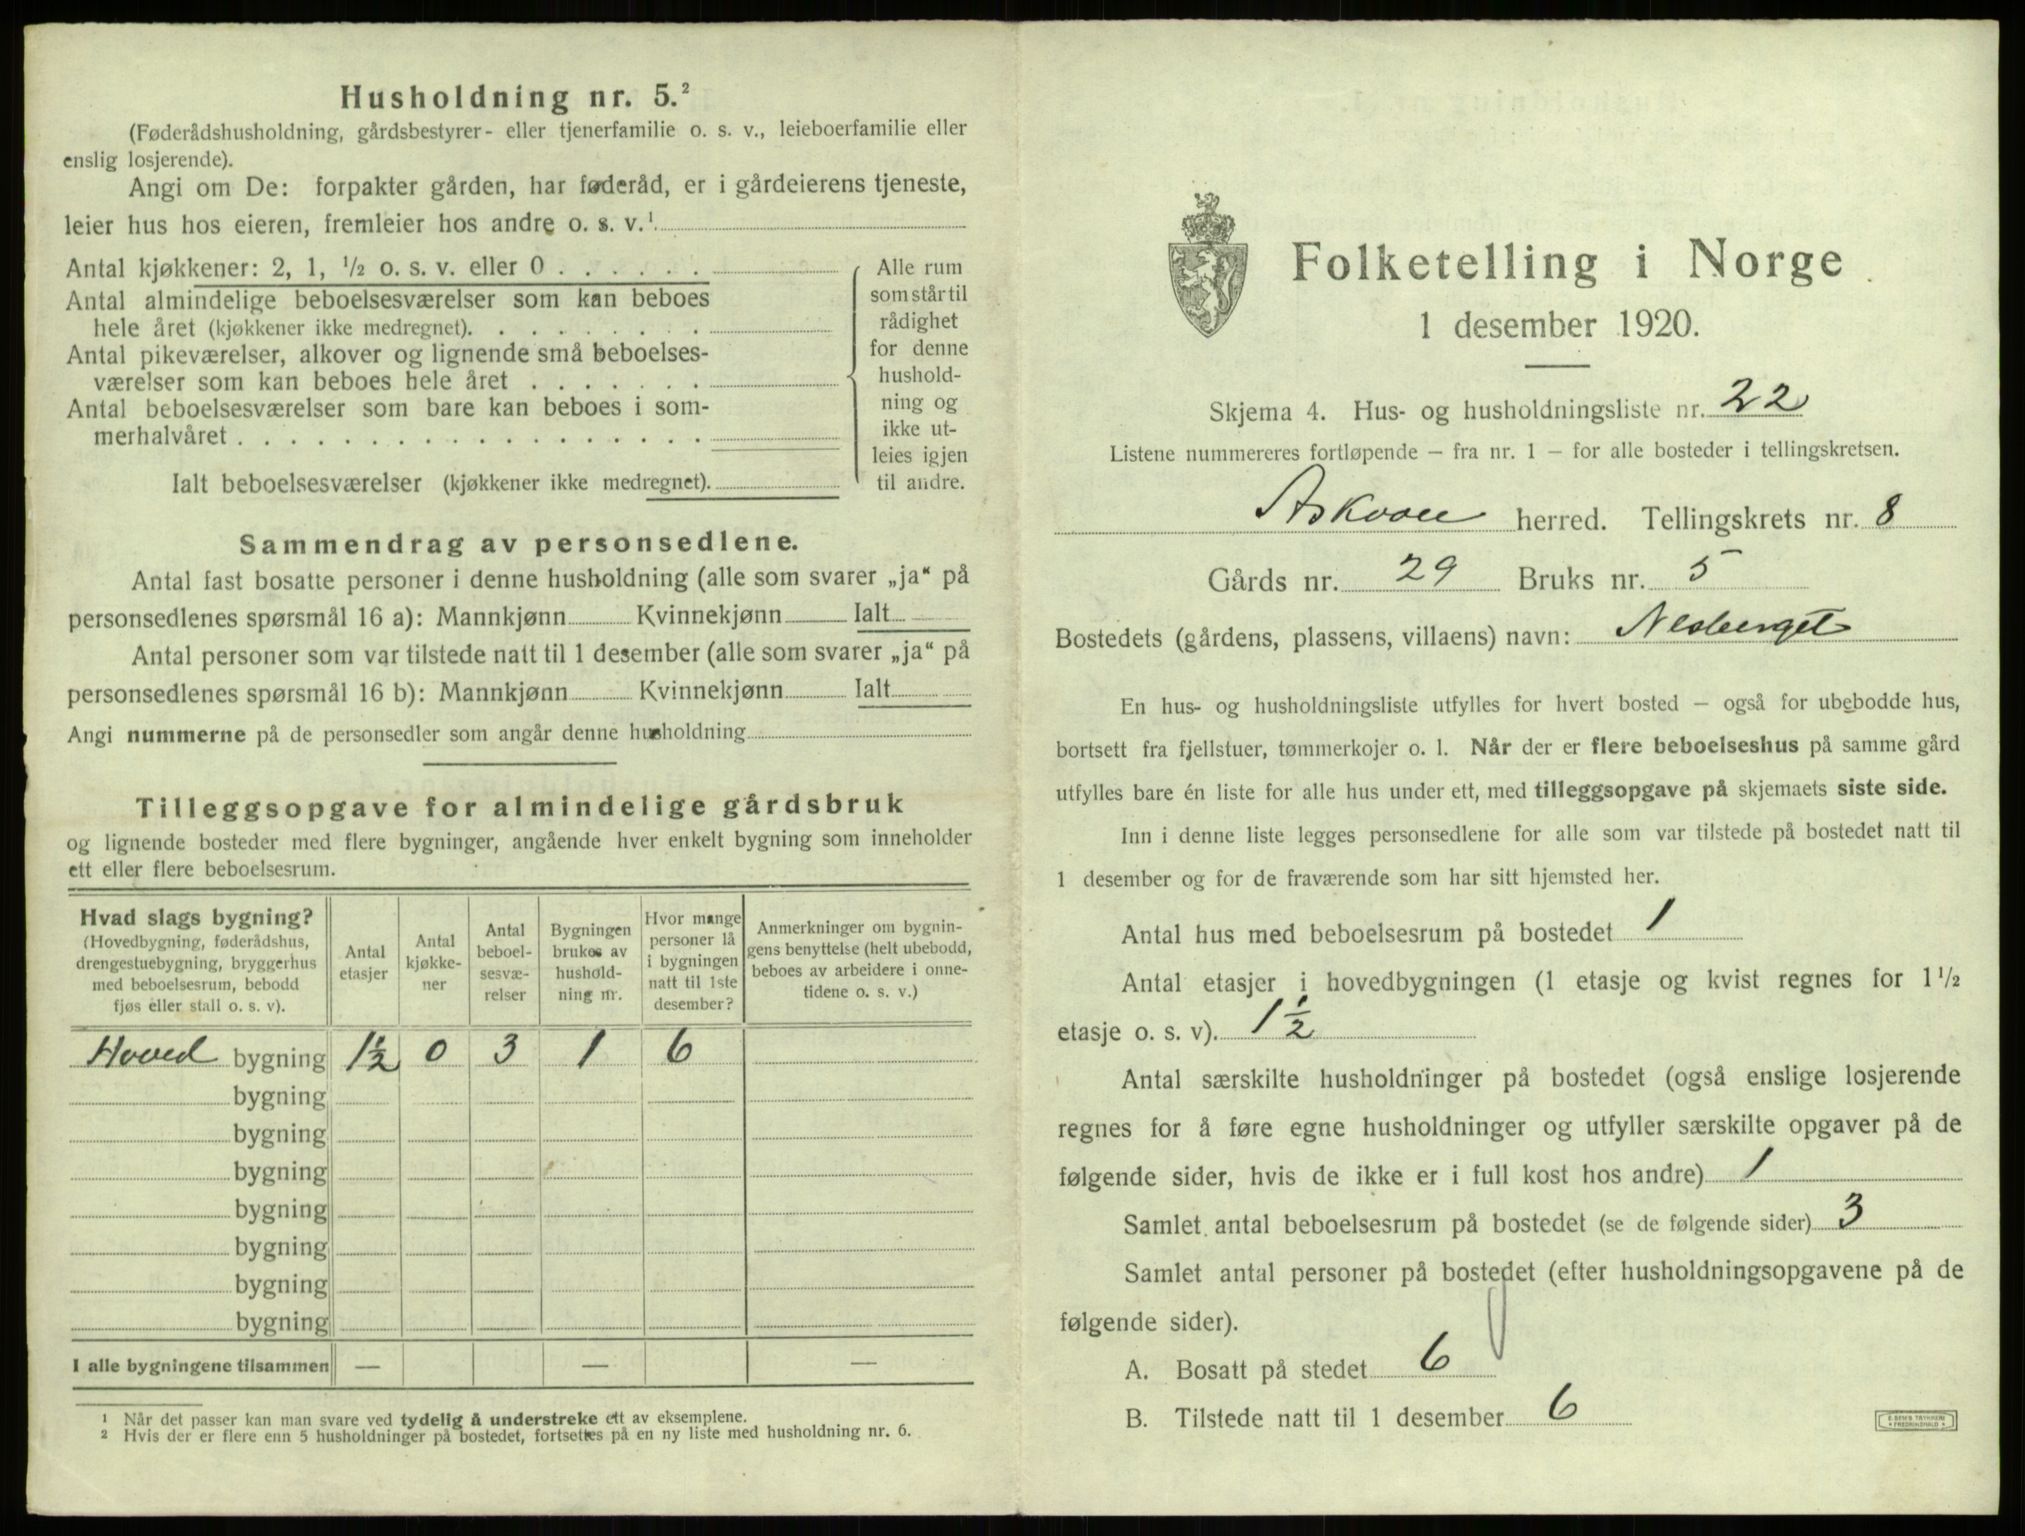 Husholdning nr. 5.²
(Føderådshusholdning, gårdsbestyrer- eller tjenerfamilie o. s. v., leieboerfamilie eller
enslig losjerende).
Angi om De: forpakter gården, har føderåd, er i gårdeierens tjeneste,
leier hus hos eieren, fremleier hos andre o. s. v.¹
Antal kjøkkener: 2, 1, ½ o. s. v. eller 0 . . . . . .
Antal almindelige beboelsesværelser som kan beboes
hele året (kjøkkener ikke medregnet). . . . . . . . .
Antal pikeværelser, alkover og lignende små beboelses-
værelser som kan beboes hele året . . . . . . .
Antal beboelsesværelser som bare kan beboes i som-
merhalvåret . . . . . . . . . . . . . . . . . .
Ialt beboelsesværelser (kjøkkener ikke medregnet).
Alle rum
som står til
rådighet
for denne
hushold-
ning og
ikke ut-
leies igjen
til andre.
Sammendrag av personsedlene.
Antal fast bosatte personer i denne husholdning (alle som svarer „ja“ på
personsedlenes spørsmål 16 a): Mannkjønn Kvinnekjønn Ialt
Antal personer som var tilstede natt til 1 desember (alle som svarer „ja“ på
personsedlenes spørsmål 16 b): Mannkjønn Kvinnekjønn Ialt
Angi nummerne på de personsedler som angår denne husholdning
Tilleggsopgave for almindelige gårdsbruk
og lignende bosteder med flere bygninger, angående hver enkelt bygning som inneholder
ett eller flere beboelsesrum.
Hvad slags bygning?
(Hovedbygning, føderådshus,
drengestuebygning, bryggerhus
med beboelsesrum, bebodd
fjøs eller stall o. s. v).
Antal
etasjer
Antal
kjøkke-
ner
Antal
beboel-
sesvæ-
relser
Bygningen
brukes av
hushold-
ning nr.
Hvor mange
personer lå
i bygningen
natt til 1ste
desember?
Anmerkninger om bygnin-
gens benyttelse (helt ubebodd,
beboes av arbeidere i onne-
tidene o. s. v.)
Hoved bygning 1½ 0 3 1 6
bygning
bygning
bygning
bygning
bygning
bygning
bygning
I alle bygningene tilsammen — — —
¹ Når det passer kan man svare ved tydelig å understreke ett av eksemplene.
² Hvis der er flere enn 5 husholdninger på bostedet, fortsettes på en ny liste med husholdning nr. 6.
Folketelling i Norge
1 desember 1920.
Skjema 4. Hus- og husholdningsliste nr. 22
Listene nummereres fortløpende – fra nr. 1 – for alle bosteder i tellingskretsen.
Askvoll herred. Tellingskrets nr. 8
Gårds nr. 29 Bruks nr. 5
Bostedets (gårdens, plassens, villaens) navn: Nesberget
En hus- og husholdningsliste utfylles for hvert bosted – også for ubebodde hus,
bortsett fra fjellstuer, tømmerkojer o. l. Når der er flere beboelseshus på samme gård
utfylles bare én liste for alle hus under ett, med tilleggsopgave på skjemaets siste side.
Inn i denne liste legges personsedlene for alle som var tilstede på bostedet natt til
1 desember og for de fraværende som har sitt hjemsted her.
Antal hus med beboelsesrum på bostedet 1
Antal etasjer i hovedbygningen (1 etasje og kvist regnes for 1½
etasje o. s. v). 1½
Antal særskilte husholdninger på bostedet (også enslige losjerende
regnes for å føre egne husholdninger og utfyller særskilte opgaver på de
følgende sider, hvis de ikke er i full kost hos andre) 1
Samlet antal beboelsesrum på bostedet (se de følgende sider) 3
Samlet antal personer på bostedet (efter husholdningsopgavene på de
følgende sider).
A. Bosatt på stedet 6
B. Tilstede natt til 1 desember 6
E. SEM'S TRYKKERI
FREDRIKSHALD